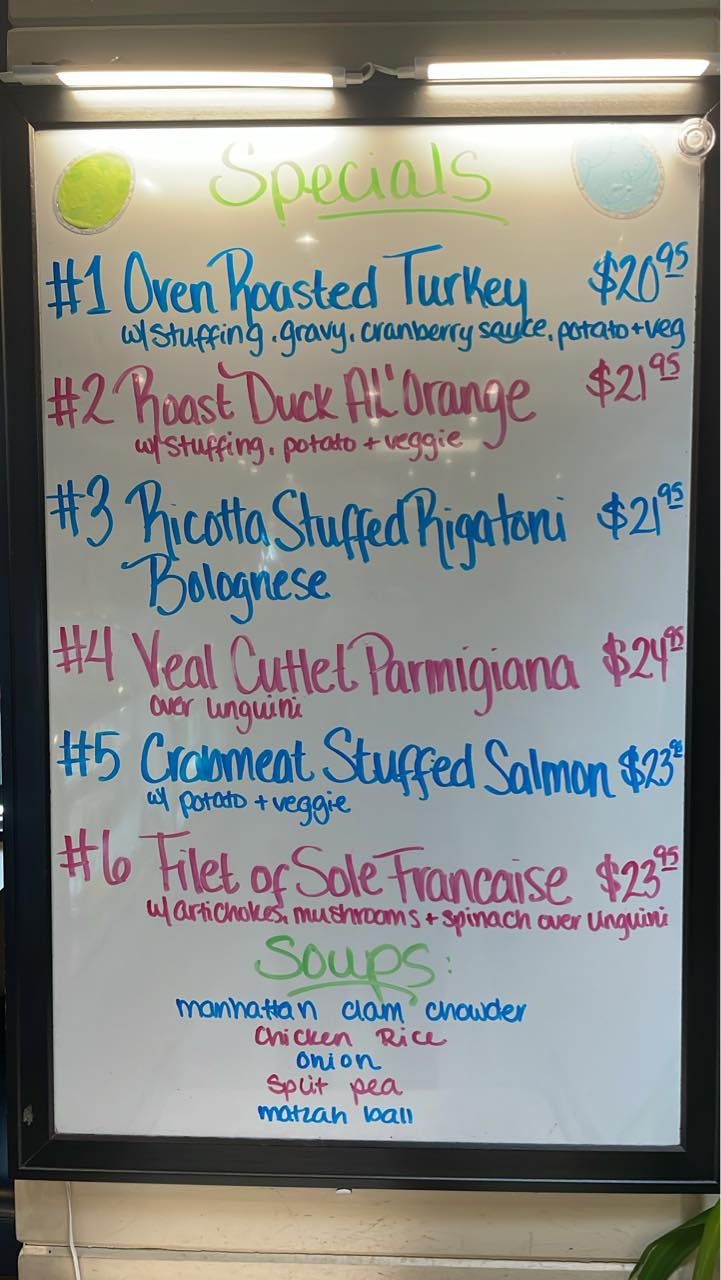 Specials
#1 Oven Roasted Turkey $20.95
w/ stuffing, gravy, cranberry sauce, potato + veg
#2 Roast Duck AL'Orange $21.95
w/ stuffing, potato + veggie
#3 Ricotta Stuffed Rigatoni $21.95
Bolognese
#4 Veal Cutlet Parmigiana $24.95
over linguini
#5 Crabmeat Stuffed Salmon $23.95
w/ potato + veggie
#6 Filet of Sole Francaise $23.95
w/ artichokes, mushrooms + spinach over linguini
Soups:
manhattan clam chowder
Chicken Rice
onion
Split pea
matzah ball